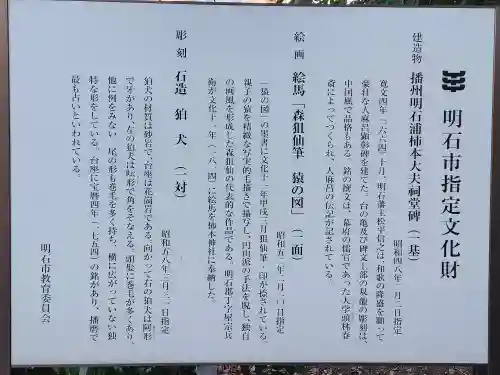 明石市指定文化財
建造物 播州明石浦柿本大夫祠堂碑(一基)
昭和四八年二月二日指定
寛文四年(一六六四)十月、明石藩主松平信之は、和歌の隆盛を願って
豪壮な人麻呂顕彰碑を建てた。台の亀及び碑文上部の双龍の彫刻は、
中国風で品格もある。銘の撰文は、幕府の儒官であった大学頭林春
斎によってつくられ、人麻呂の伝記が記されている。
絵画 絵馬「森狙仙筆 猿の図」(一面)
昭和五一年二月二〇日指定
「猿の図」の墨書に文化十一年甲戌二月狙仙筆・印が捺されている。
親子の猿を精緻な写実的毛描きで描写し、円山派の手法を脱し、独自
の画風を形成した森狙仙の代表的な作品である。明石郡丁字屋宗兵
衛が文化十一年(一八一四)に絵馬を柿本神社に奉納した。
彫刻 石造 狛犬(一対)
昭和五八年三月三一日指定
狛犬の材質は砂岩で、台座は花崗岩である。向かって右の狛犬は阿形
で牙があり、左の狛犬は吽形で角をそなえる。頭髪に巻毛が多くあり、
他に例をみない。尾の形も巻毛を多く持ち、横に広がっていない独
特な形をしている。台座に宝暦四年(一七五四)の銘があり、播磨で
最も古いといわれている。
明石市教育委員会